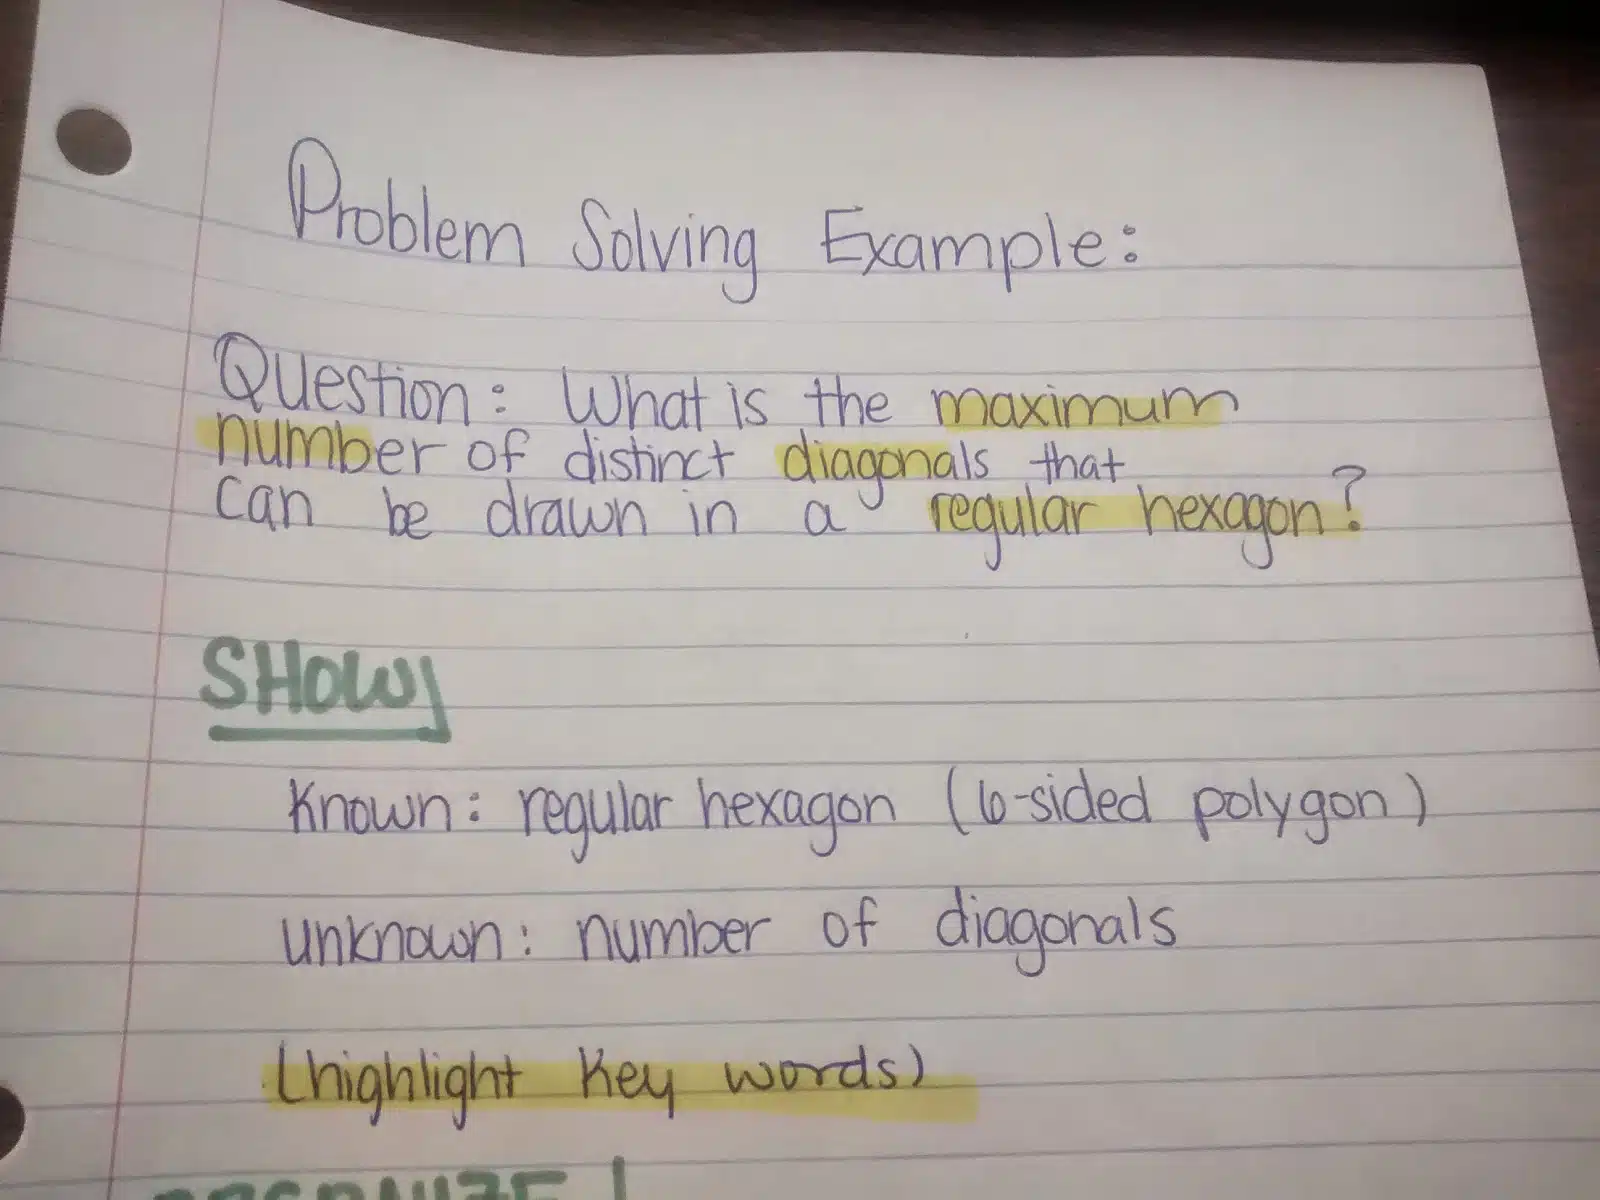 Problem Solving Example:
Question: What is the maximum
number of distinct diagonals that
can be drawn in a regular hexagon?
SHOW
Known: regular hexagon (6-sided polygon)
unknown: number of diagonals
(highlight key words)